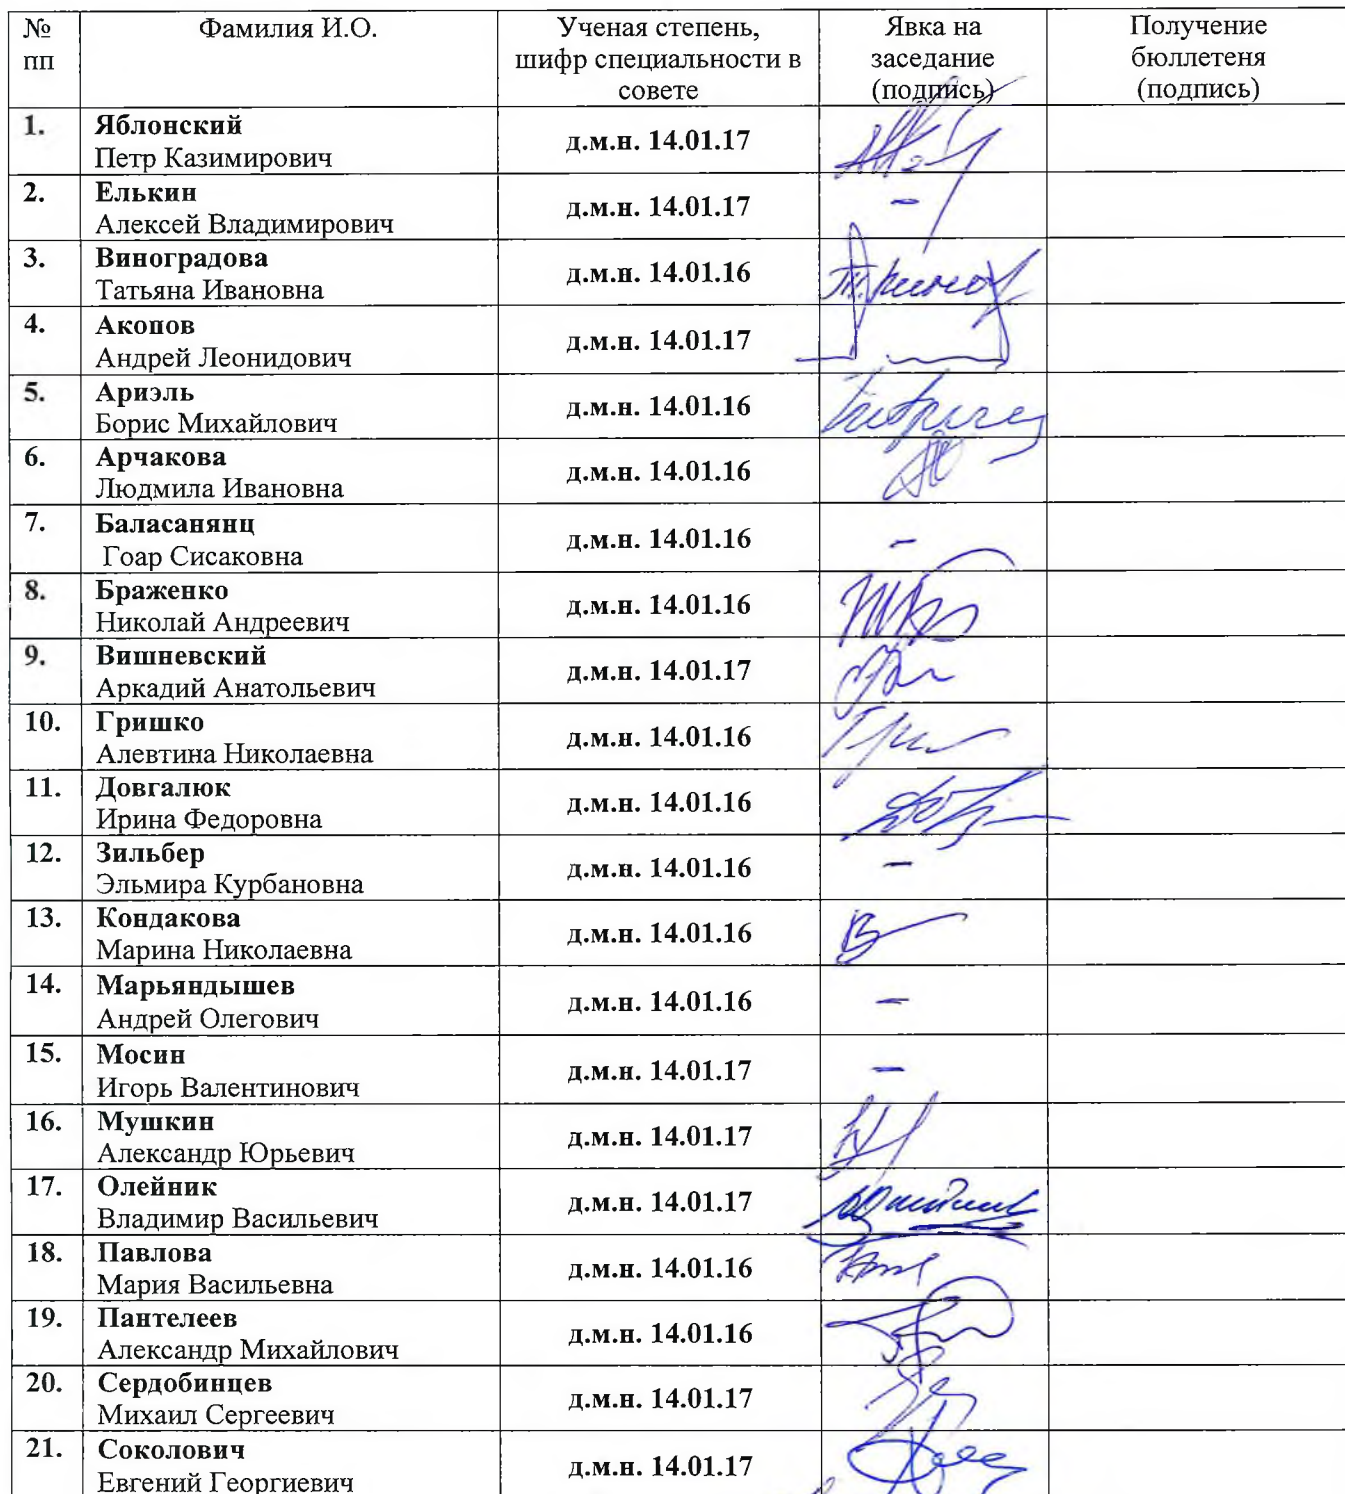 № пп Фамилия И.О. Ученая степень, шифр специальности в совете Явка на заседание (подпись) Получение бюллетеня (подпись)
1. Яблонский
Петр Казимирович д.м.н. 14.01.17
2. Елькин
Алексей Владимирович д.м.н. 14.01.17 –
3. Виноградова
Татьяна Ивановна д.м.н. 14.01.16
4. Акопов
Андрей Леонидович д.м.н. 14.01.17
5. Ариэль
Борис Михайлович д.м.н. 14.01.16
6. Арчакова
Людмила Ивановна д.м.н. 14.01.16
7. Баласанянц
Гоар Сисаковна д.м.н. 14.01.16 –
8. Браженко
Николай Андреевич д.м.н. 14.01.16
9. Вишневский
Аркадий Анатольевич д.м.н. 14.01.17
10. Гришко
Алевтина Николаевна д.м.н. 14.01.16
11. Довгалюк
Ирина Федоровна д.м.н. 14.01.16
12. Зильбер
Эльмира Курбановна д.м.н. 14.01.16 –
13. Кондакова
Марина Николаевна д.м.н. 14.01.16
14. Марьяндышев
Андрей Олегович д.м.н. 14.01.16 –
15. Мосин
Игорь Валентинович д.м.н. 14.01.17 –
16. Мушкин
Александр Юрьевич д.м.н. 14.01.17
17. Олейник
Владимир Васильевич д.м.н. 14.01.17
18. Павлова
Мария Васильевна д.м.н. 14.01.16
19. Пантелеев
Александр Михайлович д.м.н. 14.01.16
20. Сердобинцев
Михаил Сергеевич д.м.н. 14.01.17
21. Соколович
Евгений Георгиевич д.м.н. 14.01.17